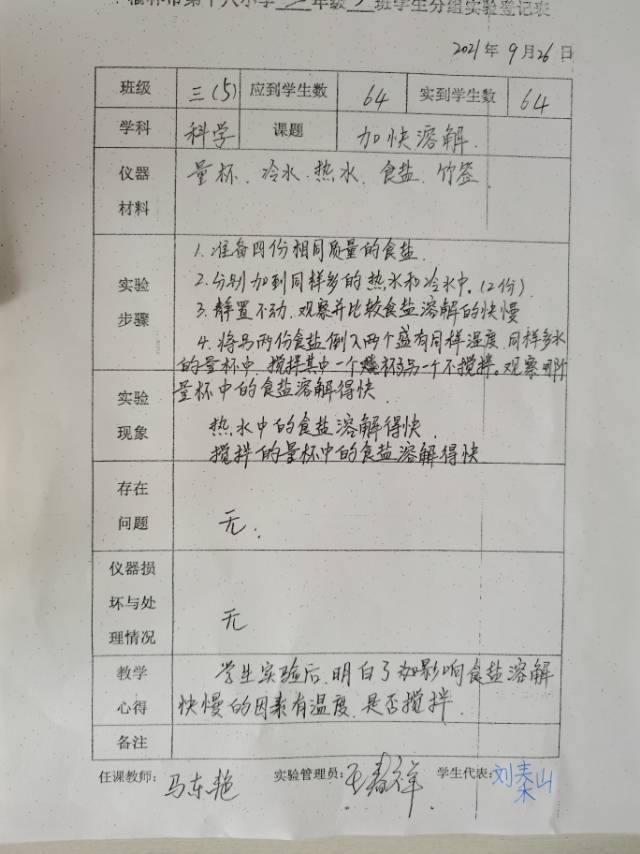 榆林市第十八小学三年级5班学生分组实验登记表
2021年9月26日
班级 三(5) 应到学生数 64 实到学生数 64
学科 科学 课题 加快溶解
仪器材料 量杯、冷水、热水、食盐、竹签
实验步骤
1.准备四份相同质量的食盐.
2.分别加到同样多的热水和冷水中。(2份)
3.静置不动,观察并比较食盐溶解的快慢
4.将另两份食盐倒入两个盛有同样温度、同样多水
的量杯中,搅拌其中一个,另一个不搅拌。观察哪个
量杯中的食盐溶解得快.
实验现象
热水中的食盐溶解得快.
搅拌的量杯中的食盐溶解得快
存在问题 无.
仪器损坏与处理情况 无
教学心得
学生实验后,明白了影响食盐溶解
快慢的因素有温度、是否搅拌.
备注
任课教师:马东艳 实验管理员: 学生代表:刘秦山